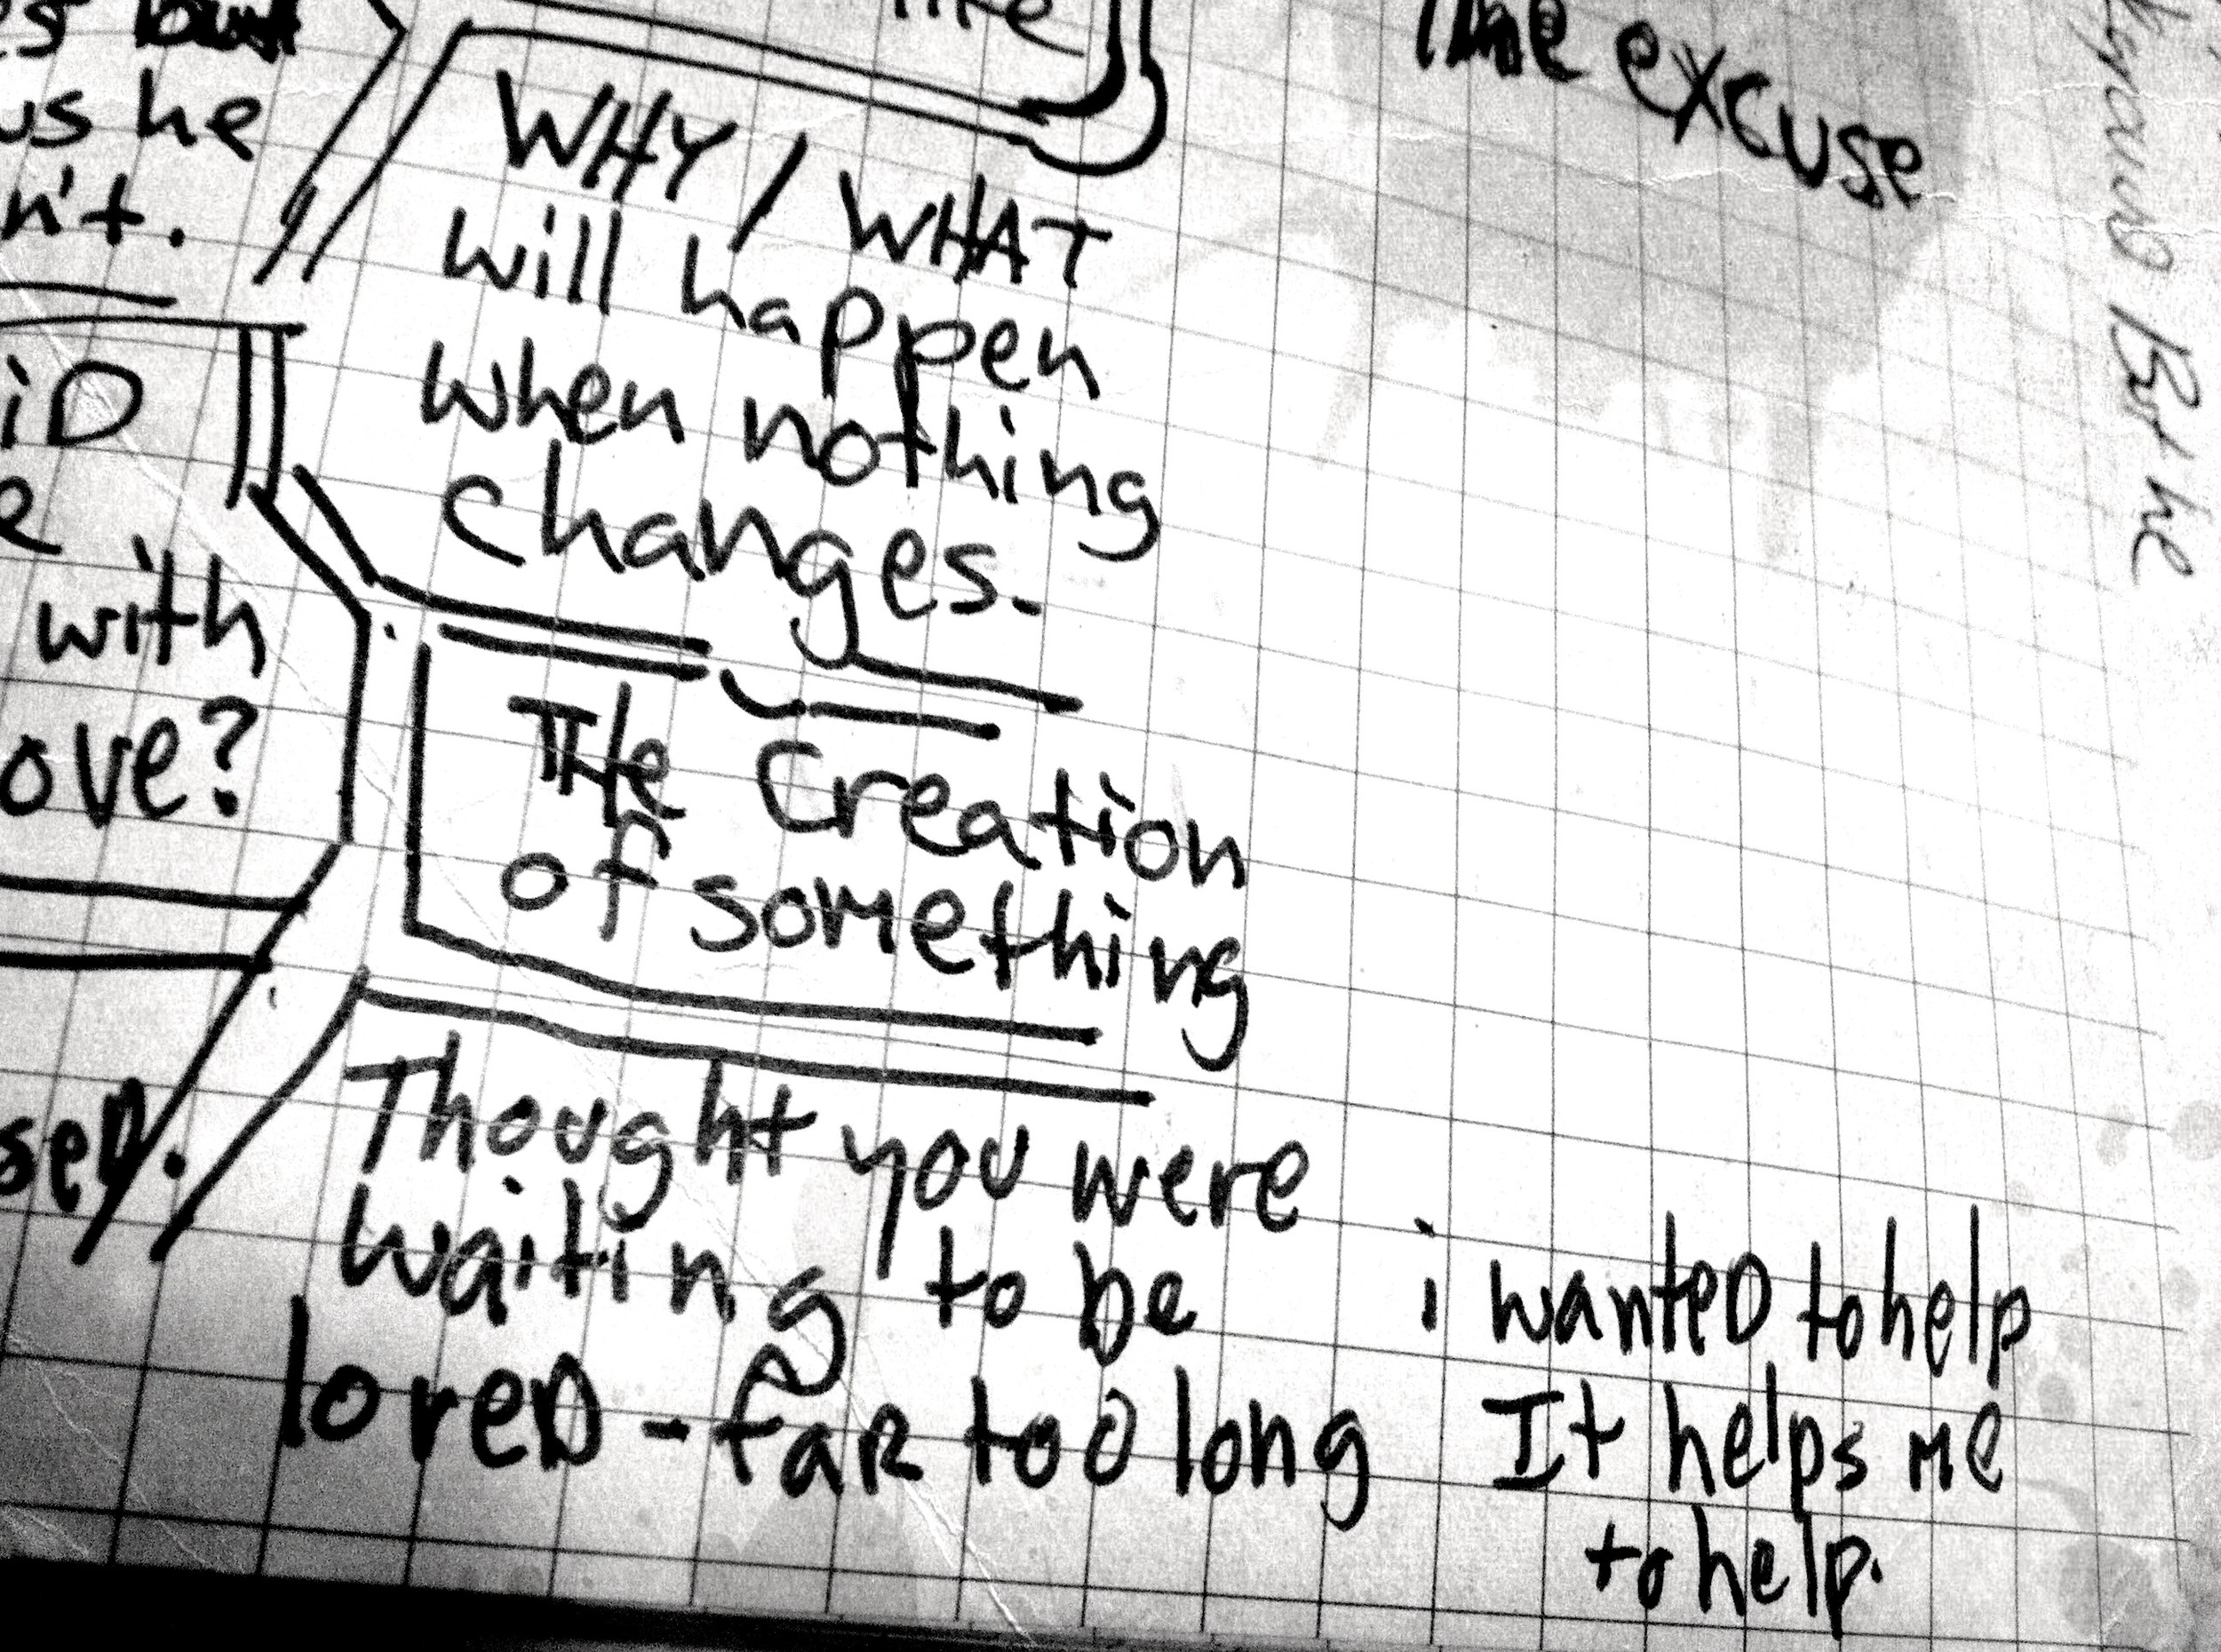 he
n't.
with
The excuse
WHY / WHAT
will happen
when nothing
changes.
THe Creation
of something
Thought you were
waiting to be
loveD - faR too long
i wanteD to help
It helps Me
to help.